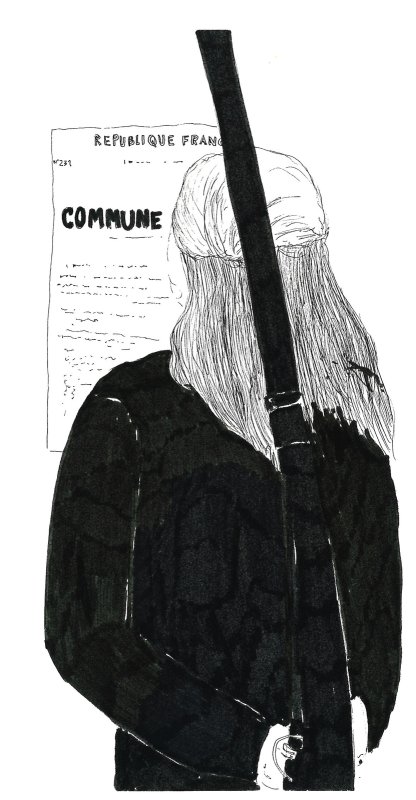 REPUBLIQUE FRANC
N°239
COMMUNE